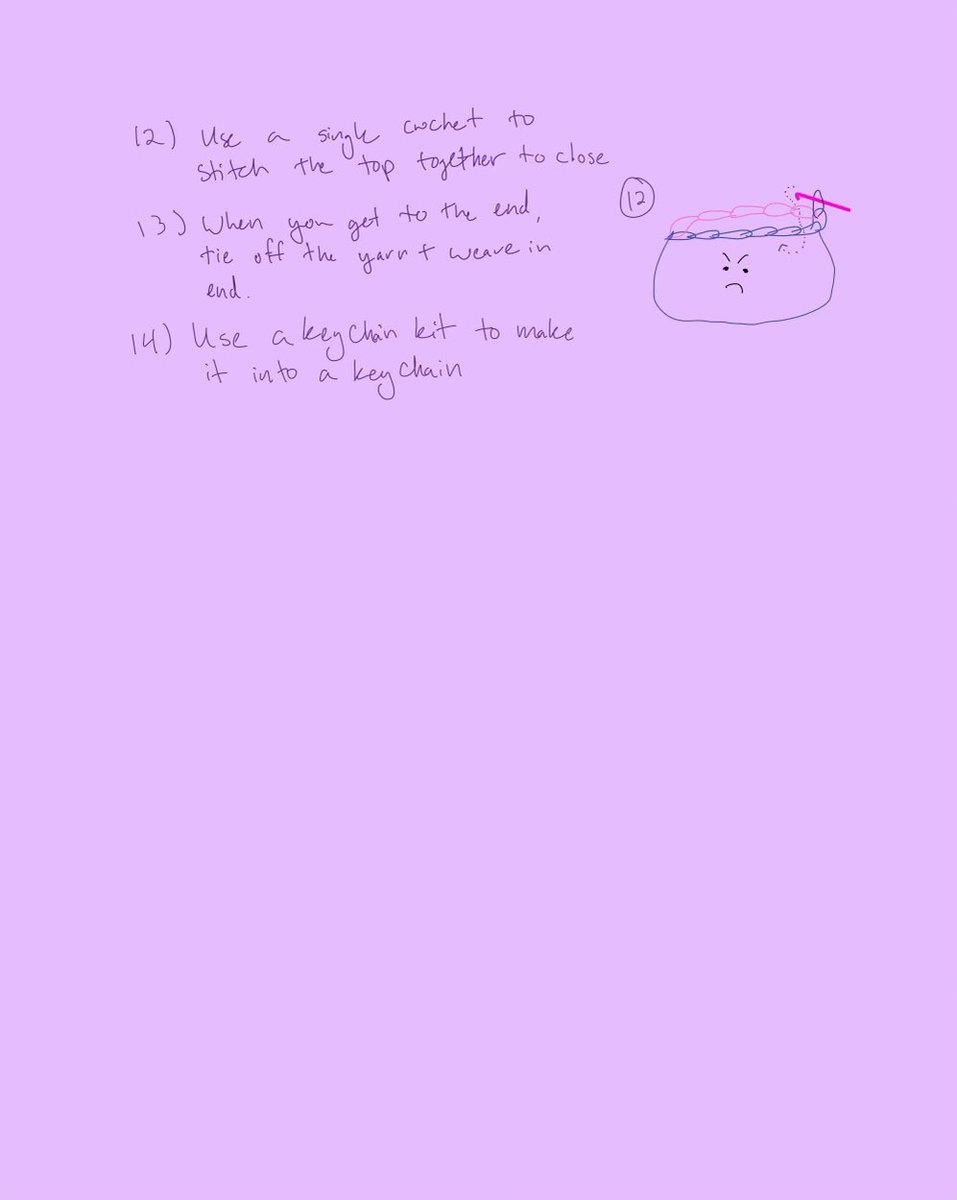 12) Use a single crochet to
stitch the top together to close
12
13) When you get to the end,
tie off the yarn + weave in
end.
14) Use a keychain kit to make
it into a keychain